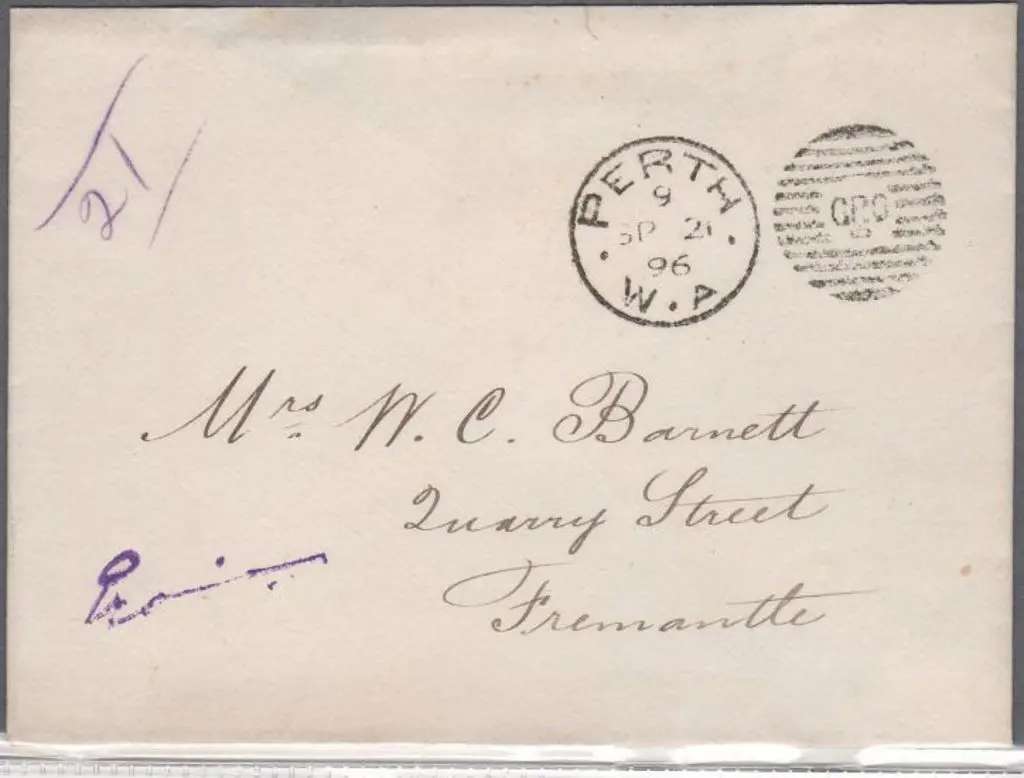 21
PERTH
9
SP 21
96
W.A
GPO
Mrs W. C. Barnett
Quarry Street
Fremantle